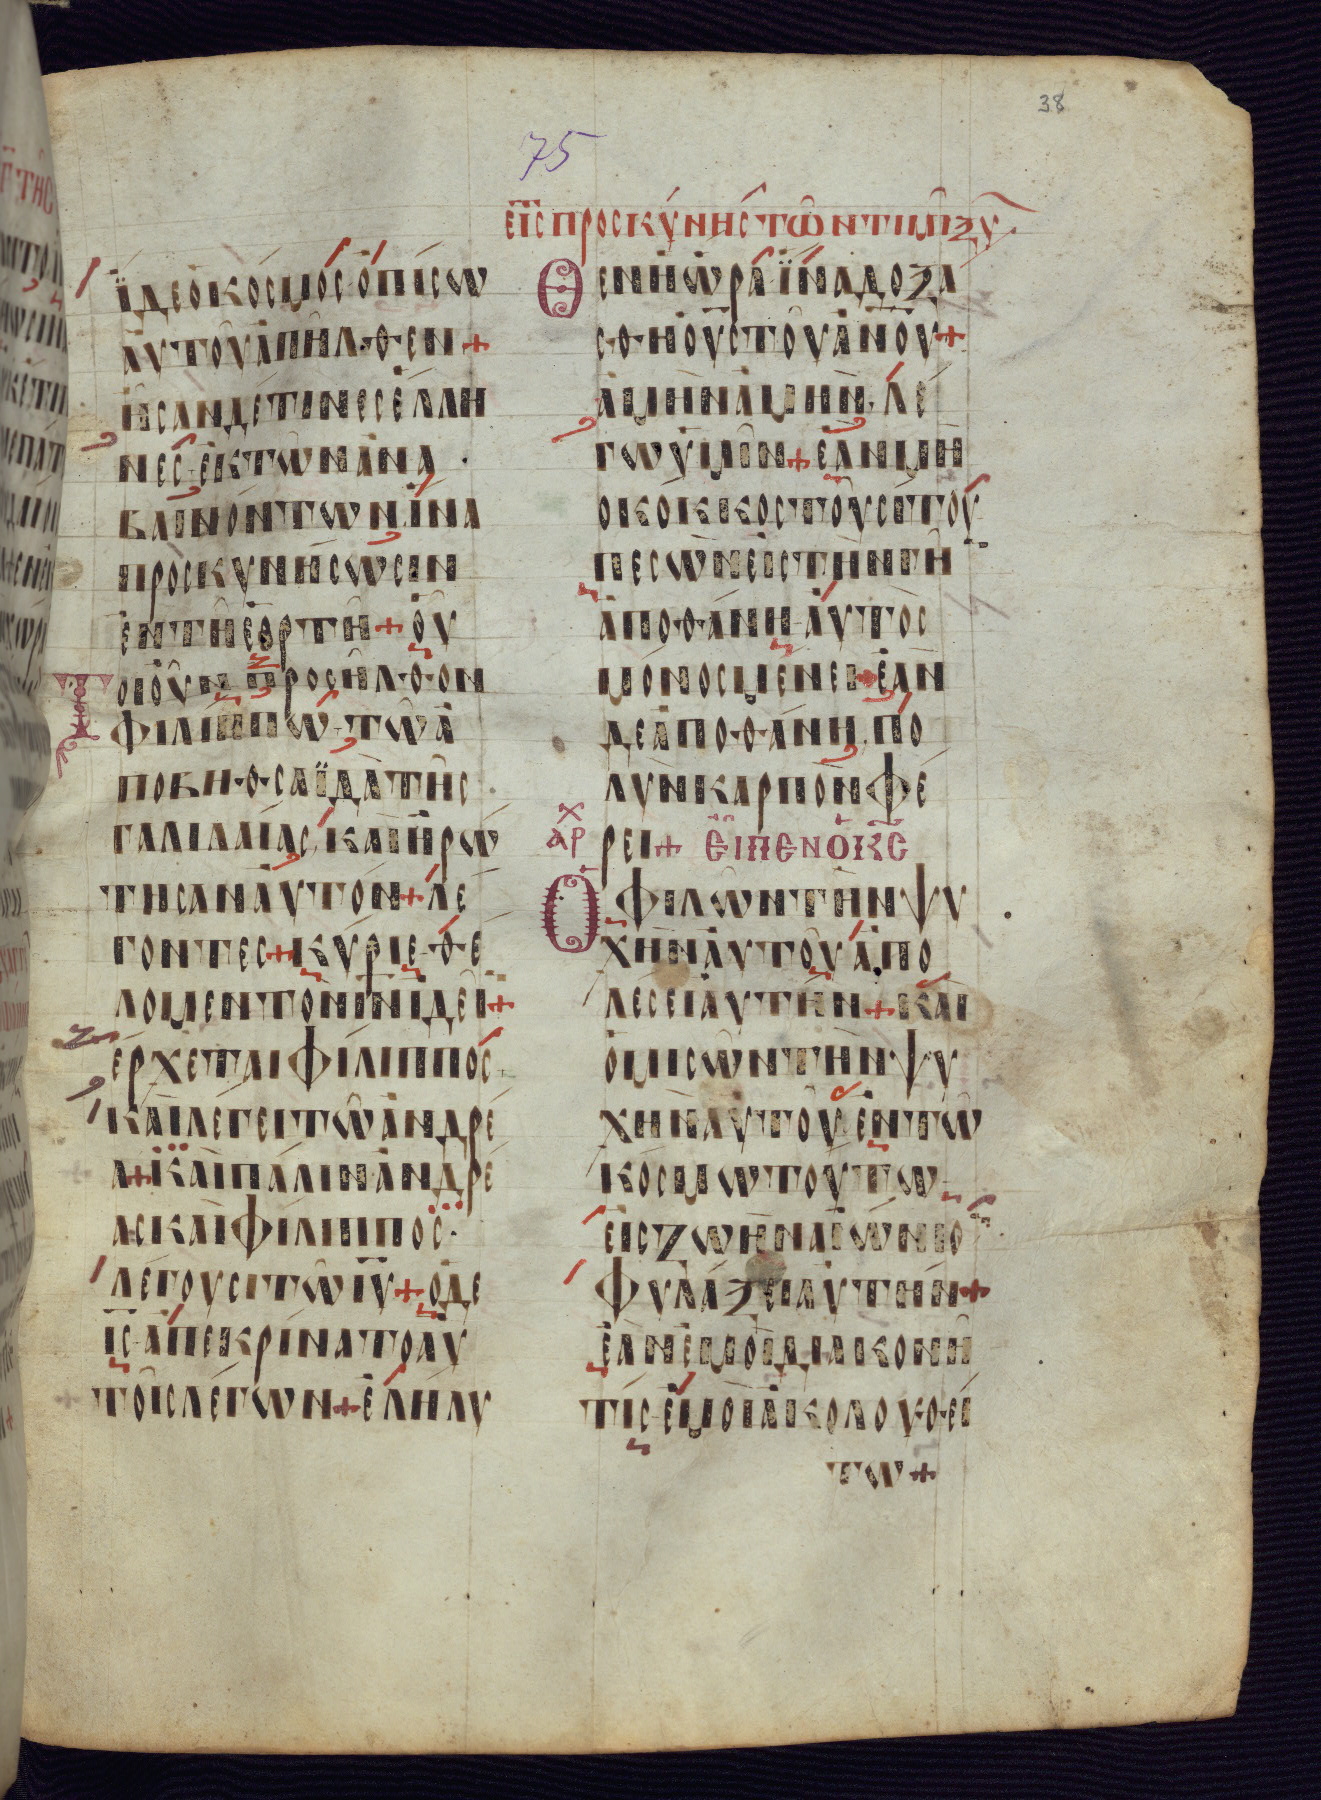 38
75
εἰς προσκύνησ τῶν τιμ ξυ
ἴδε ὁ κόσμος ὀπίσω
αὐτοῦ ἀπῆλθεν +
ἦσαν δέ τινες ἕλλη
νές ἐκ τῶν ἀνα
βαινόντων ἵνα
προσκυνήσωσιν
ἐν τῇ ἑορτῇ + οὗ
τοι οὖν προσῆλθον
φιλίππω τῶ ἀ
πὸ βηθσαϊδὰ τῆς
γαλιλαίας καὶ ἠρώ
τησαν αὐτὸν + λέ
γοντες + κύριε θέ
λομεν τὸν ιν ἰδεῖ +
ἔρχεται φίλιππος
καὶ λέγει τῶ ἀνδρέ
α + καὶ πάλιν ἀνδρέ
ας καὶ φίλιππος
λέγουσι τῶ ιυ + ὁ δὲ
ις ἀπεκρίνατο αὐ
τοῖς λέγων + ἐλήλυ
θεν ἡ ὥρα ἵνα δοξα
σθῆ ὁ υς τοῦ ανου +
ἀμὴν ἀμὴν λέ
γω ὑμῖν + ἐὰν μὴ
ὁ κόκκος τοῦ σίτου
πεσὼν εἰς τὴν γῆ
ἀποθάνη αὐτὸς
μόνος μένει + ἐὰν
δὲ ἀποθάνη πο
λὺν καρπὸν φέ
ρει + εἶπεν ὁ κς
αρχ
Ὁ φιλῶν τὴν ψυ
χὴν αὐτοῦ ἀπο
λέσει αὐτὴν + καὶ
ὁ μισῶν τὴν ψυ
χὴν αὐτοῦ ἐν τῶ
κόσμω τούτω
εἰς ζωὴν αἰώνιο
φυλάξει αὐτήν +
ἐὰν ἐμοὶ διακονῆ
τίς ἐμοὶ ἀκολουθεί
τω +